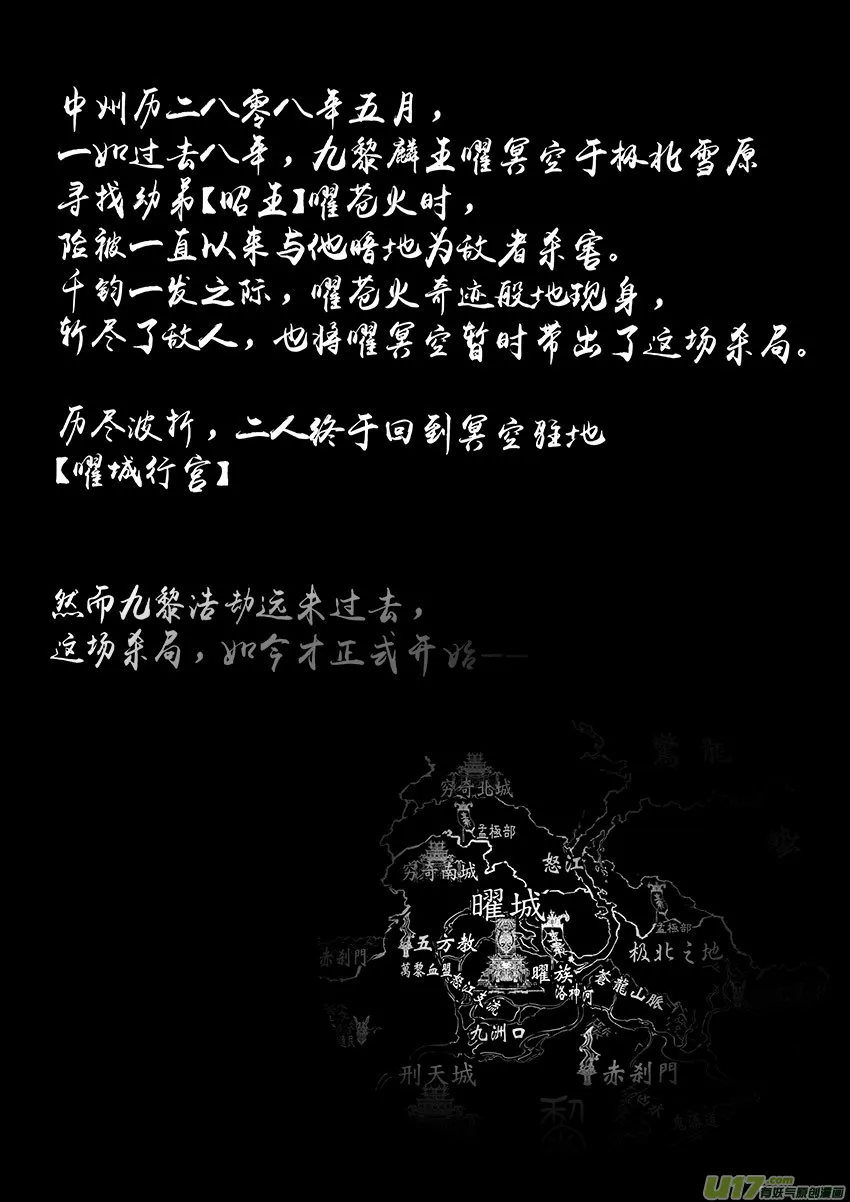 中州历二八零八年五月，
一如过去八年，九黎麟王曜冥空于极北雪原
寻找幼弟【昭王】曜苍火时，
险被一直以来与他暗地为敌者杀害。
千钧一发之际，曜苍火奇迹般地现身，
斩尽了敌人，也将曜冥空暂时带出了这场杀局。
历尽波折，二人终于回到冥空驻地
【曜城行宫】
然而九黎浩劫远未过去，
这场杀局，如今才正式开始——
驚龍
穷奇北城
孟極部
怒江
穷奇南城
曜城
孟極部
五方教
极北之地
赤刹門
萬黎血盟
曜族
怒江支流
洛神河
蒼龍山脈
九洲口
刑天城
赤刹門
黎
U17.com
有妖气原创漫画